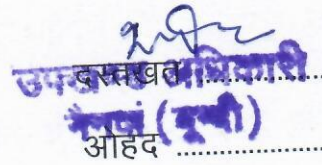 दस्तखत ..................
उपखण्ड अधिकारी
(बून्दी)
ओहद ..................